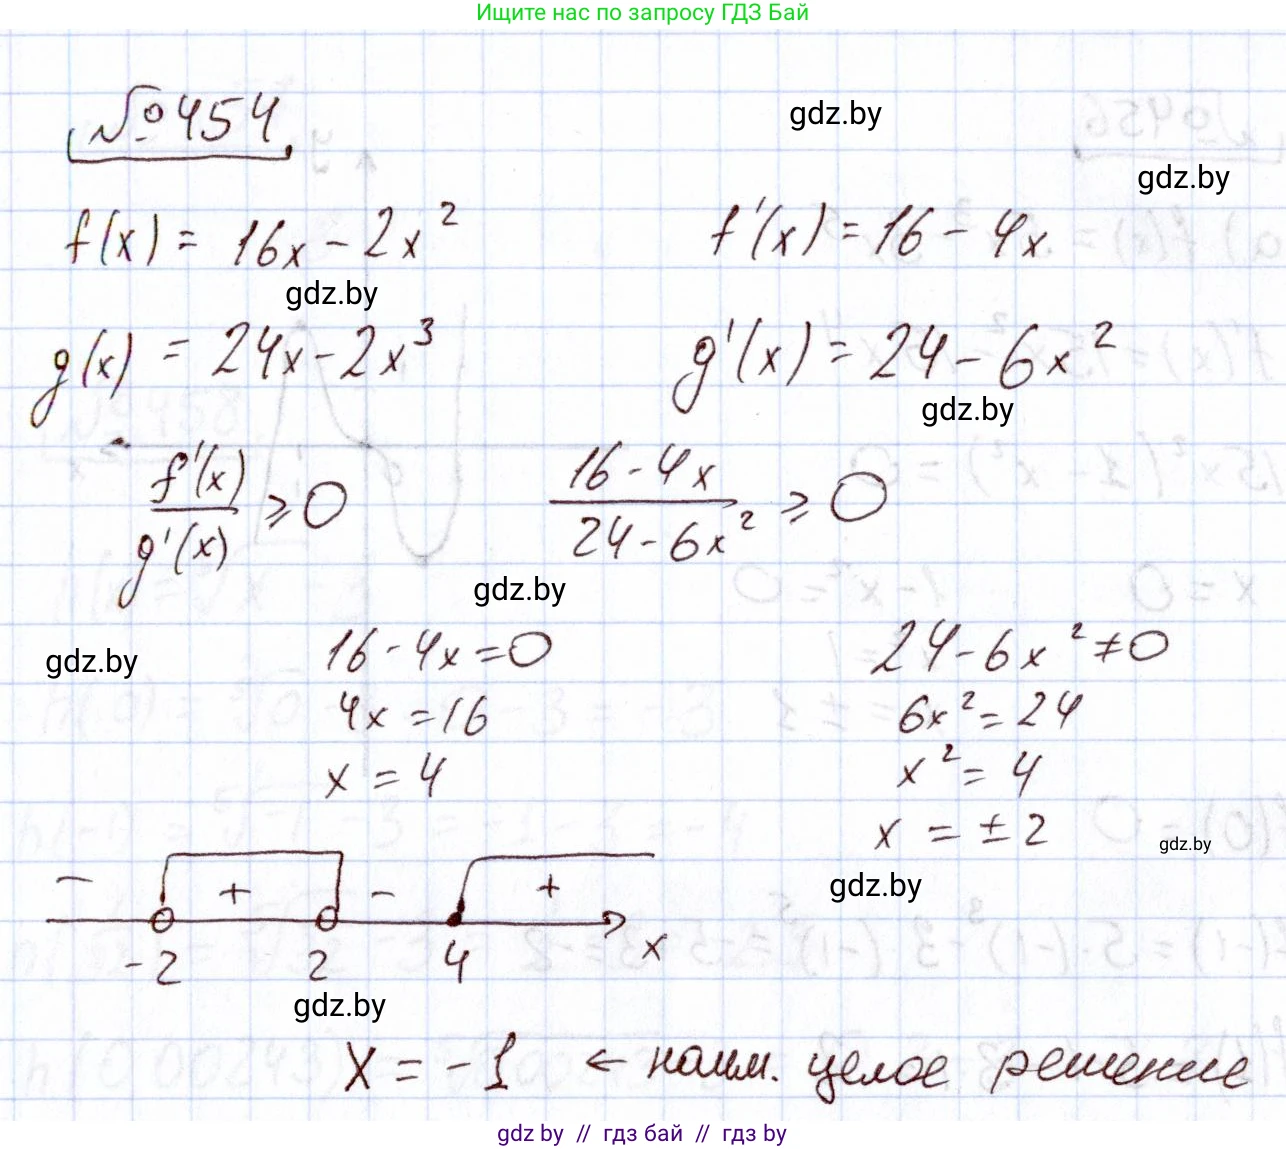 Ищите нас по запросу ГДЗ Бай
№454
gdz.by
gdz.by
f(x) = 16x - 2x² f'(x) = 16 - 4x
gdz.by
g(x) = 24x - 2x³ g'(x) = 24 - 6x²
gdz.by
f'(x)/g'(x) ⩾ 0 (16 - 4x)/(24 - 6x²) ⩾ 0
gdz.by
gdz.by
16 - 4x = 0 24 - 6x² ≠ 0
4x = 16 6x² = 24
x = 4 x² = 4
x = ± 2
gdz.by
gdz.by
- + - +
-2 2 4 x
gdz.by
x = -1 ← наим. целое решение
gdz by // гдз бай // гдз by